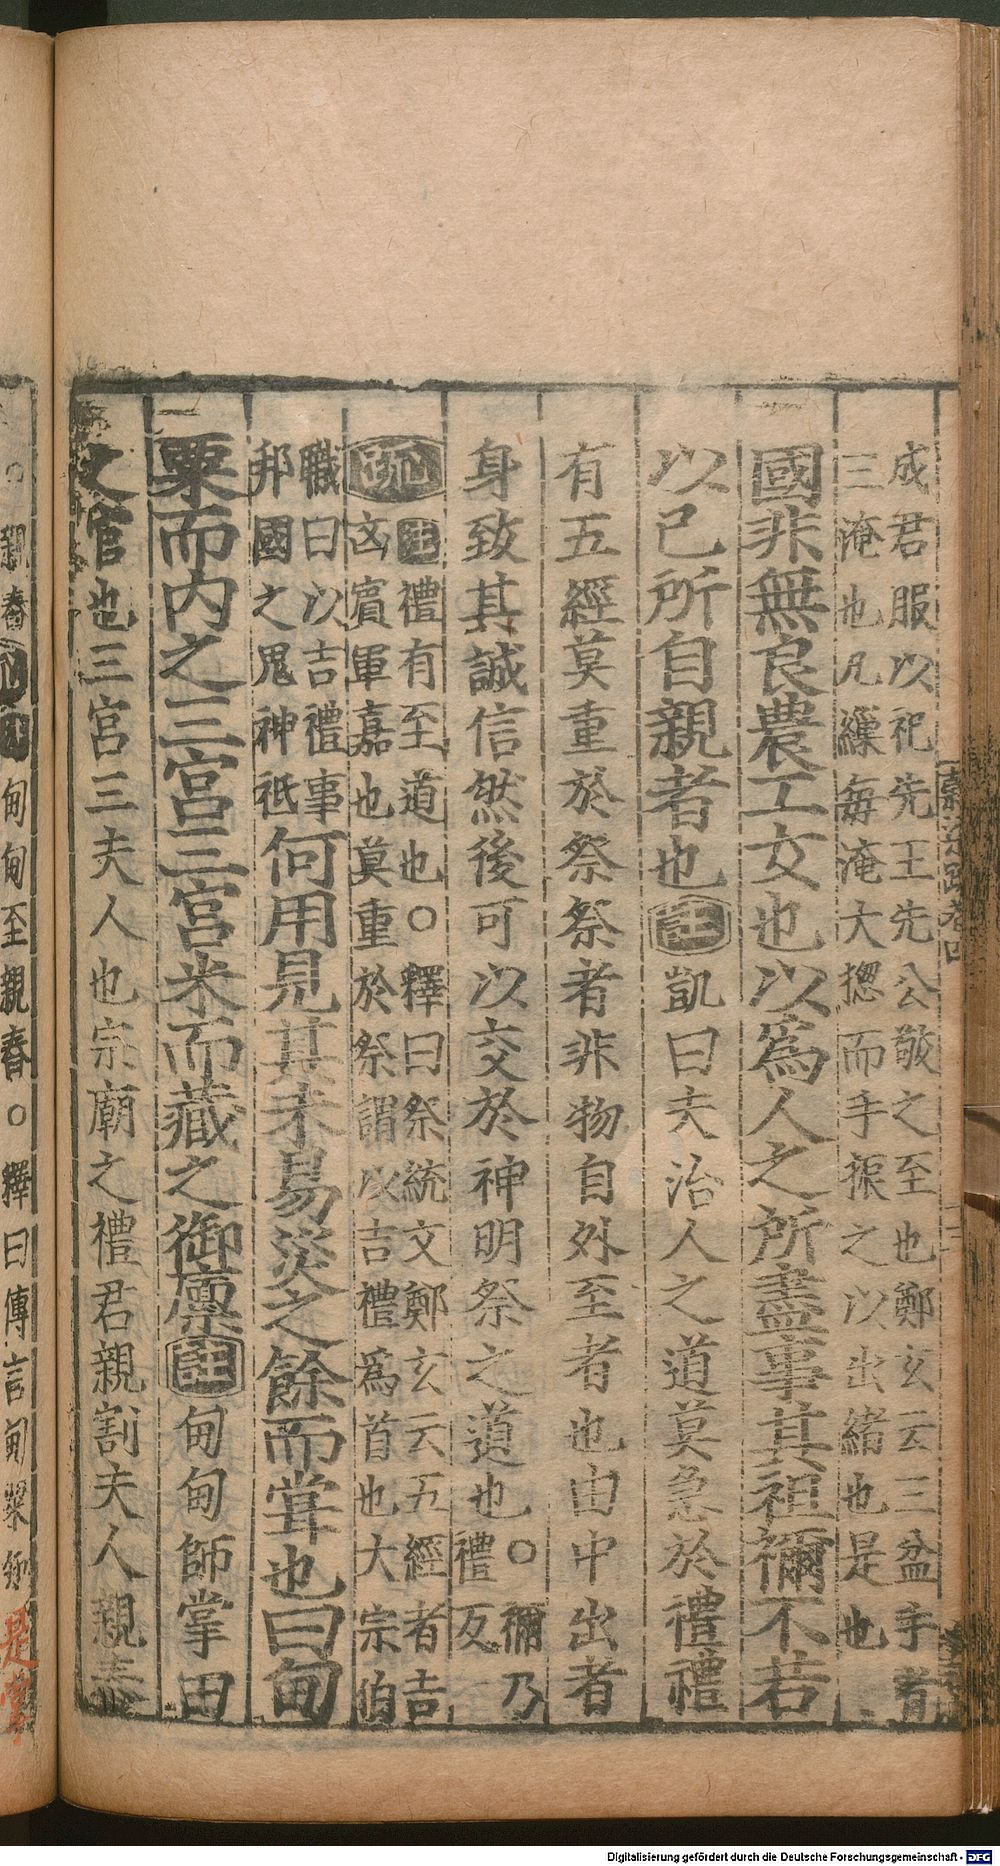 成君服以祀先王先公敬之至也鄭玄云三盆手者
三淹也凡繅每淹大揔而手振之以出緒也是也
國非無良農工女也以爲人之所盡事其祖禰不若
以己所自親者也註凱曰夫治人之道莫急於禮禮
有五經莫重於祭祭者非物自外至者也由中出者
身致其誠信然後可以交於神明祭之道也○禰乃
禮反
疏註禮有至道也○釋曰祭統文鄭玄云五經者吉
凶賓軍嘉也莫重於祭謂以吉禮爲首也大宗伯
職曰以吉禮事
邦國之鬼神祇何用見其未易災之餘而甞也曰甸
粟而内之三宮三宮米而藏之御廪註甸甸師掌田
之官也三宮三夫人也宗廟之禮君親割夫人親舂
○親舂疏註甸甸至親舂○釋曰傳言甸粟知
是掌
Digitalisierung gefördert durch die Deutsche Forschungsgemeinschaft - DFG